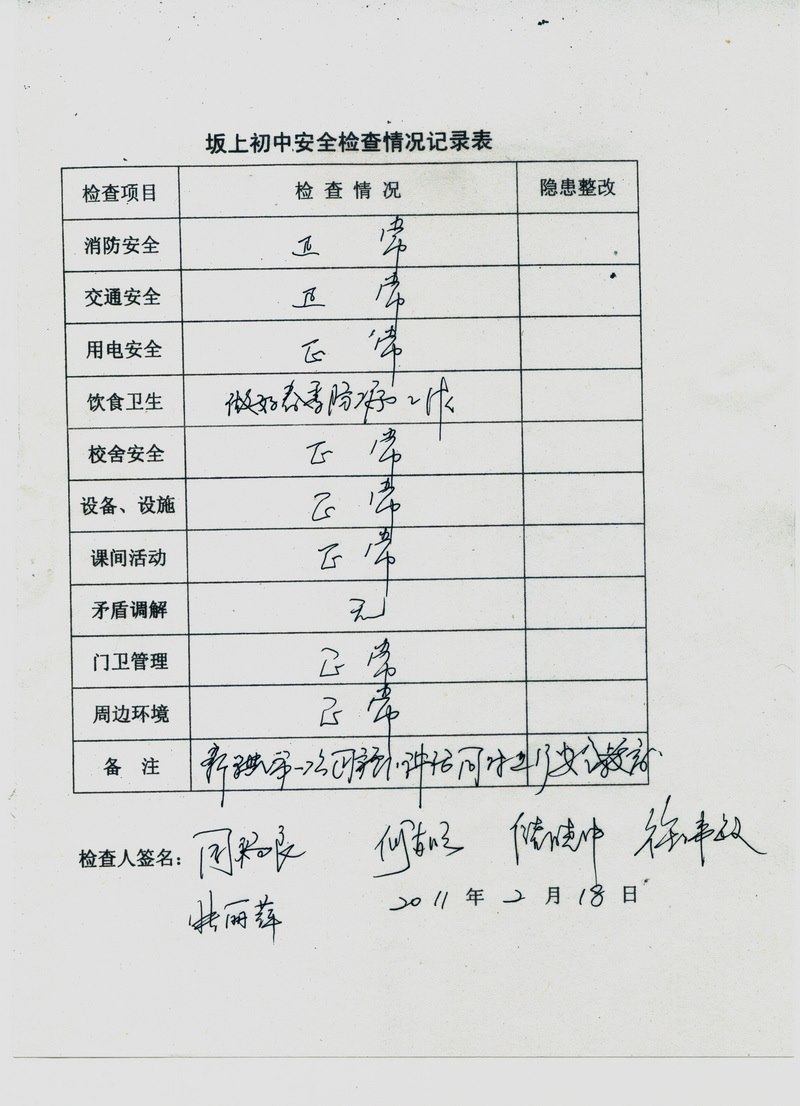 坂上初中安全检查情况记录表
检查项目 检查情况 隐患整改
消防安全 正常
交通安全 正常
用电安全 正常
饮食卫生 做好春季防病工作
校舍安全 正常
设备、设施 正常
课间活动 正常
矛盾调解 无
门卫管理 正常
周边环境 正常
备 注 新学期第一次 安全教育
检查人签名： 徐
张丽萍 2011年2月18日